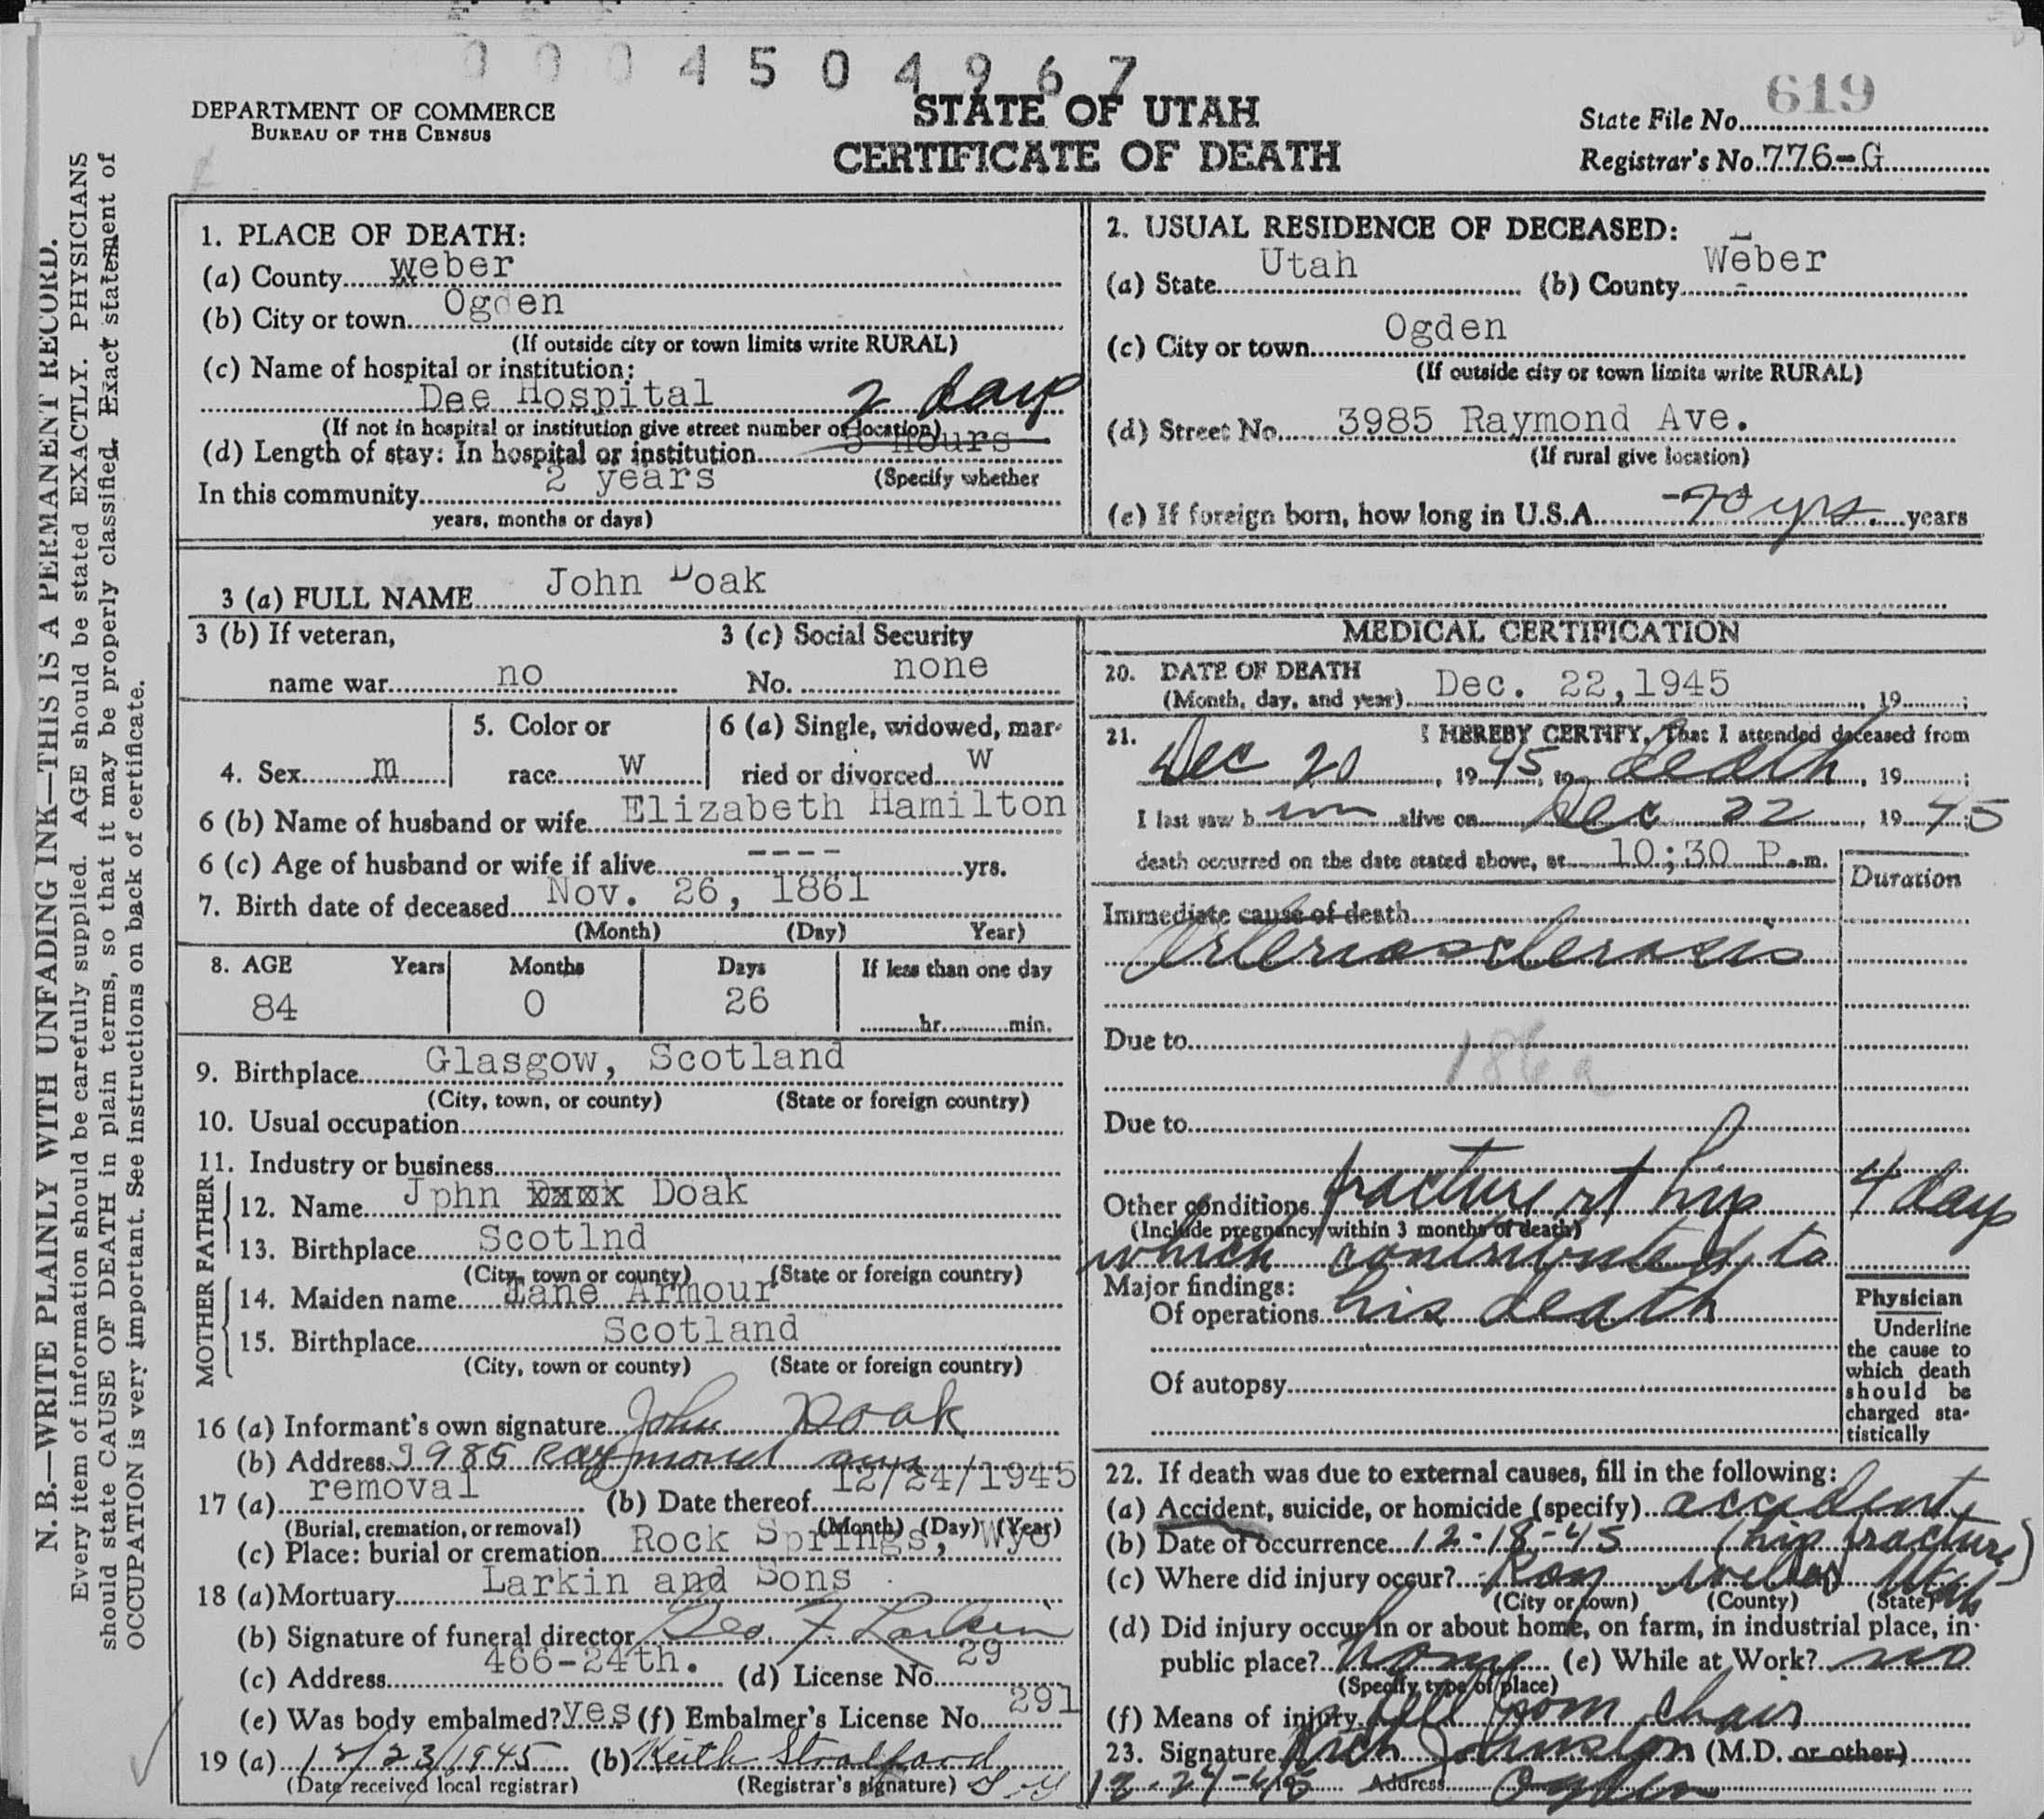 0004504967
DEPARTMENT OF COMMERCE
BUREAU OF THE CENSUS
STATE OF UTAH
CERTIFICATE OF DEATH
State File No. 619
Registrar's No. 776-G
N. B.—WRITE PLAINLY WITH UNFADING INK—THIS IS A PERMANENT RECORD.
Every item of information should be carefully supplied. AGE should be stated EXACTLY. PHYSICIANS
should state CAUSE OF DEATH in plain terms, so that it may be properly classified. Exact statement of
OCCUPATION is very important. See instructions on back of certificate.
1. PLACE OF DEATH:
(a) County weber
(b) City or town Ogden
(If outside city or town limits write RURAL)
(c) Name of hospital or institution:
Dee Hospital 2 days
(If not in hospital or institution give street number or location)
(d) Length of stay: In hospital or institution hours
(Specify whether
In this community 2 years
years, months or days)
2. USUAL RESIDENCE OF DECEASED:
(a) State Utah (b) County Weber
(c) City or town Ogden
(If outside city or town limits write RURAL)
(d) Street No. 3985 Raymond Ave.
(If rural give location)
(e) If foreign born, how long in U.S.A. -70 yrs. years
3 (a) FULL NAME John Doak
3 (b) If veteran,
name war no
3 (c) Social Security
No. none
4. Sex m
5. Color or
race W
6 (a) Single, widowed, mar-
ried or divorced W
6 (b) Name of husband or wife Elizabeth Hamilton
6 (c) Age of husband or wife if alive ---- yrs.
7. Birth date of deceased Nov. 26, 1861
(Month) (Day) Year)
8. AGE Years Months Days If less than one day
84 0 26 hr. min.
9. Birthplace Glasgow, Scotland
(City, town, or county) (State or foreign country)
10. Usual occupation
11. Industry or business
FATHER
12. Name Jphn Dxxk Doak
13. Birthplace Scotlnd
(City, town or county) (State or foreign country)
MOTHER
14. Maiden name Jane Armour
15. Birthplace Scotland
(City, town or county) (State or foreign country)
16 (a) Informant's own signature John Doak
(b) Address 3985 Raymond ave
17 (a) removal (b) Date thereof 12/24/1945
(Burial, cremation, or removal) (Month) (Day) (Year)
(c) Place: burial or cremation Rock Springs, Wyo
18 (a) Mortuary Larkin and Sons
(b) Signature of funeral director Geo. F. Larkin
(c) Address 466-24th. (d) License No. 29
(e) Was body embalmed? yes (f) Embalmer's License No. 291
19 (a) 12/23/1945 (b) Keith
(Date received local registrar) (Registrar's signature)
MEDICAL CERTIFICATION
20. DATE OF DEATH
(Month, day, and year) Dec. 22,1945, 19 ;
21. I HEREBY CERTIFY, That I attended deceased from
Dec 20, 1945, to death, 19 ;
I last saw h im alive on Dec 22, 1945
death occurred on the date stated above, at 10:30 P.m.
Duration
Immediate cause of death
Arteriosclerosis
Due to
186a
Due to
Other conditions fracture rt hip 4 days
(Include pregnancy within 3 months of death)
which contributed to
Major findings:
Of operations his death
Of autopsy
Physician
Underline
the cause to
which death
should be
charged sta-
tistically
22. If death was due to external causes, fill in the following:
(a) Accident, suicide, or homicide (specify) accident
(b) Date of occurrence 12-18-45 (hip fracture)
(c) Where did injury occur? Roy weber Utah
(City or town) (County) (State)
(d) Did injury occur in or about home, on farm, in industrial place, in
public place? home (e) While at Work? no
(Specify type of place)
(f) Means of injury fell from chair
23. Signature Rich Johnston (M.D. or other)
Address Ogden